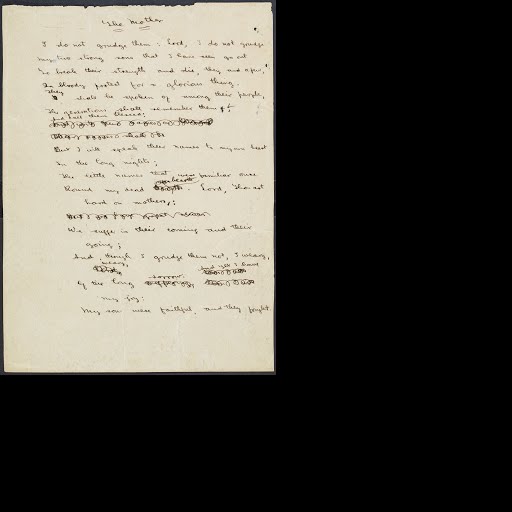 The Mother
I do not grudge them : Lord, I do not grudge
My two strong sons that I have seen go out
To break their strength and die, they and a few,
In bloody protest for a glorious thing.
They shall be spoken of among their people,
The generations shall remember them,
And call them blessed;
But I will speak their names to my own heart
In the long nights;
The little names that were familiar once
Round my dead hearth. Lord, thou art
hard on mothers:
We suffer in their coming and their
going;
And, though I grudge them not, I weary,
weary,
Of the long sorrow. And yet I have
my joy:
My sons were faithful, and they fought